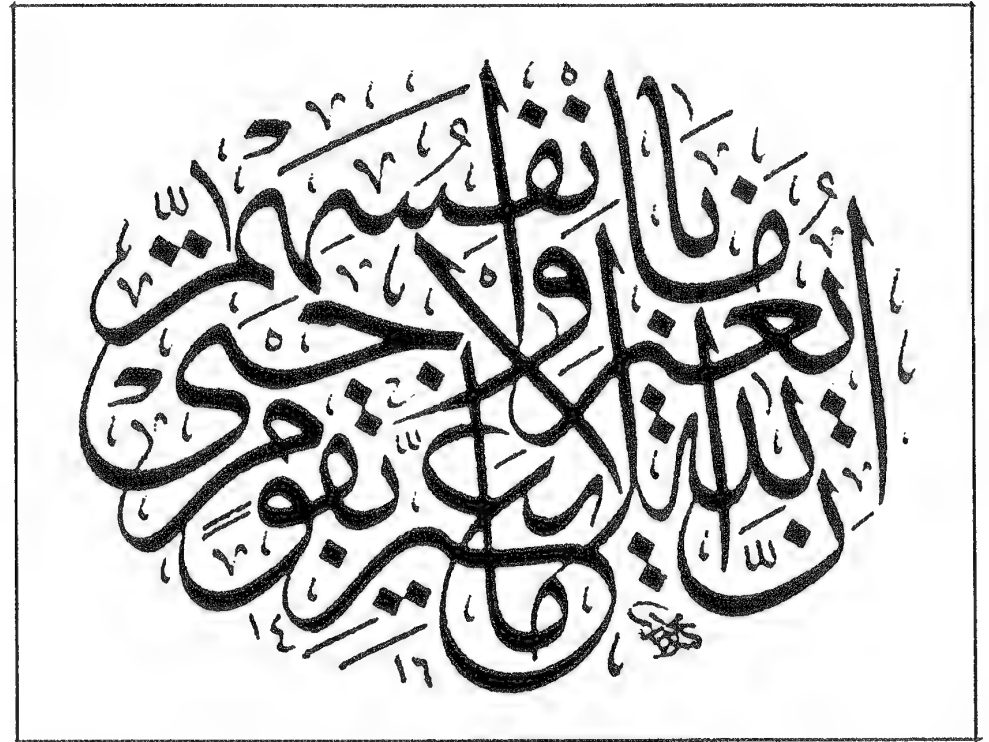 إن الله لا يغير ما بقوم حتى يغيروا ما بأنفسهم
١٤١٦